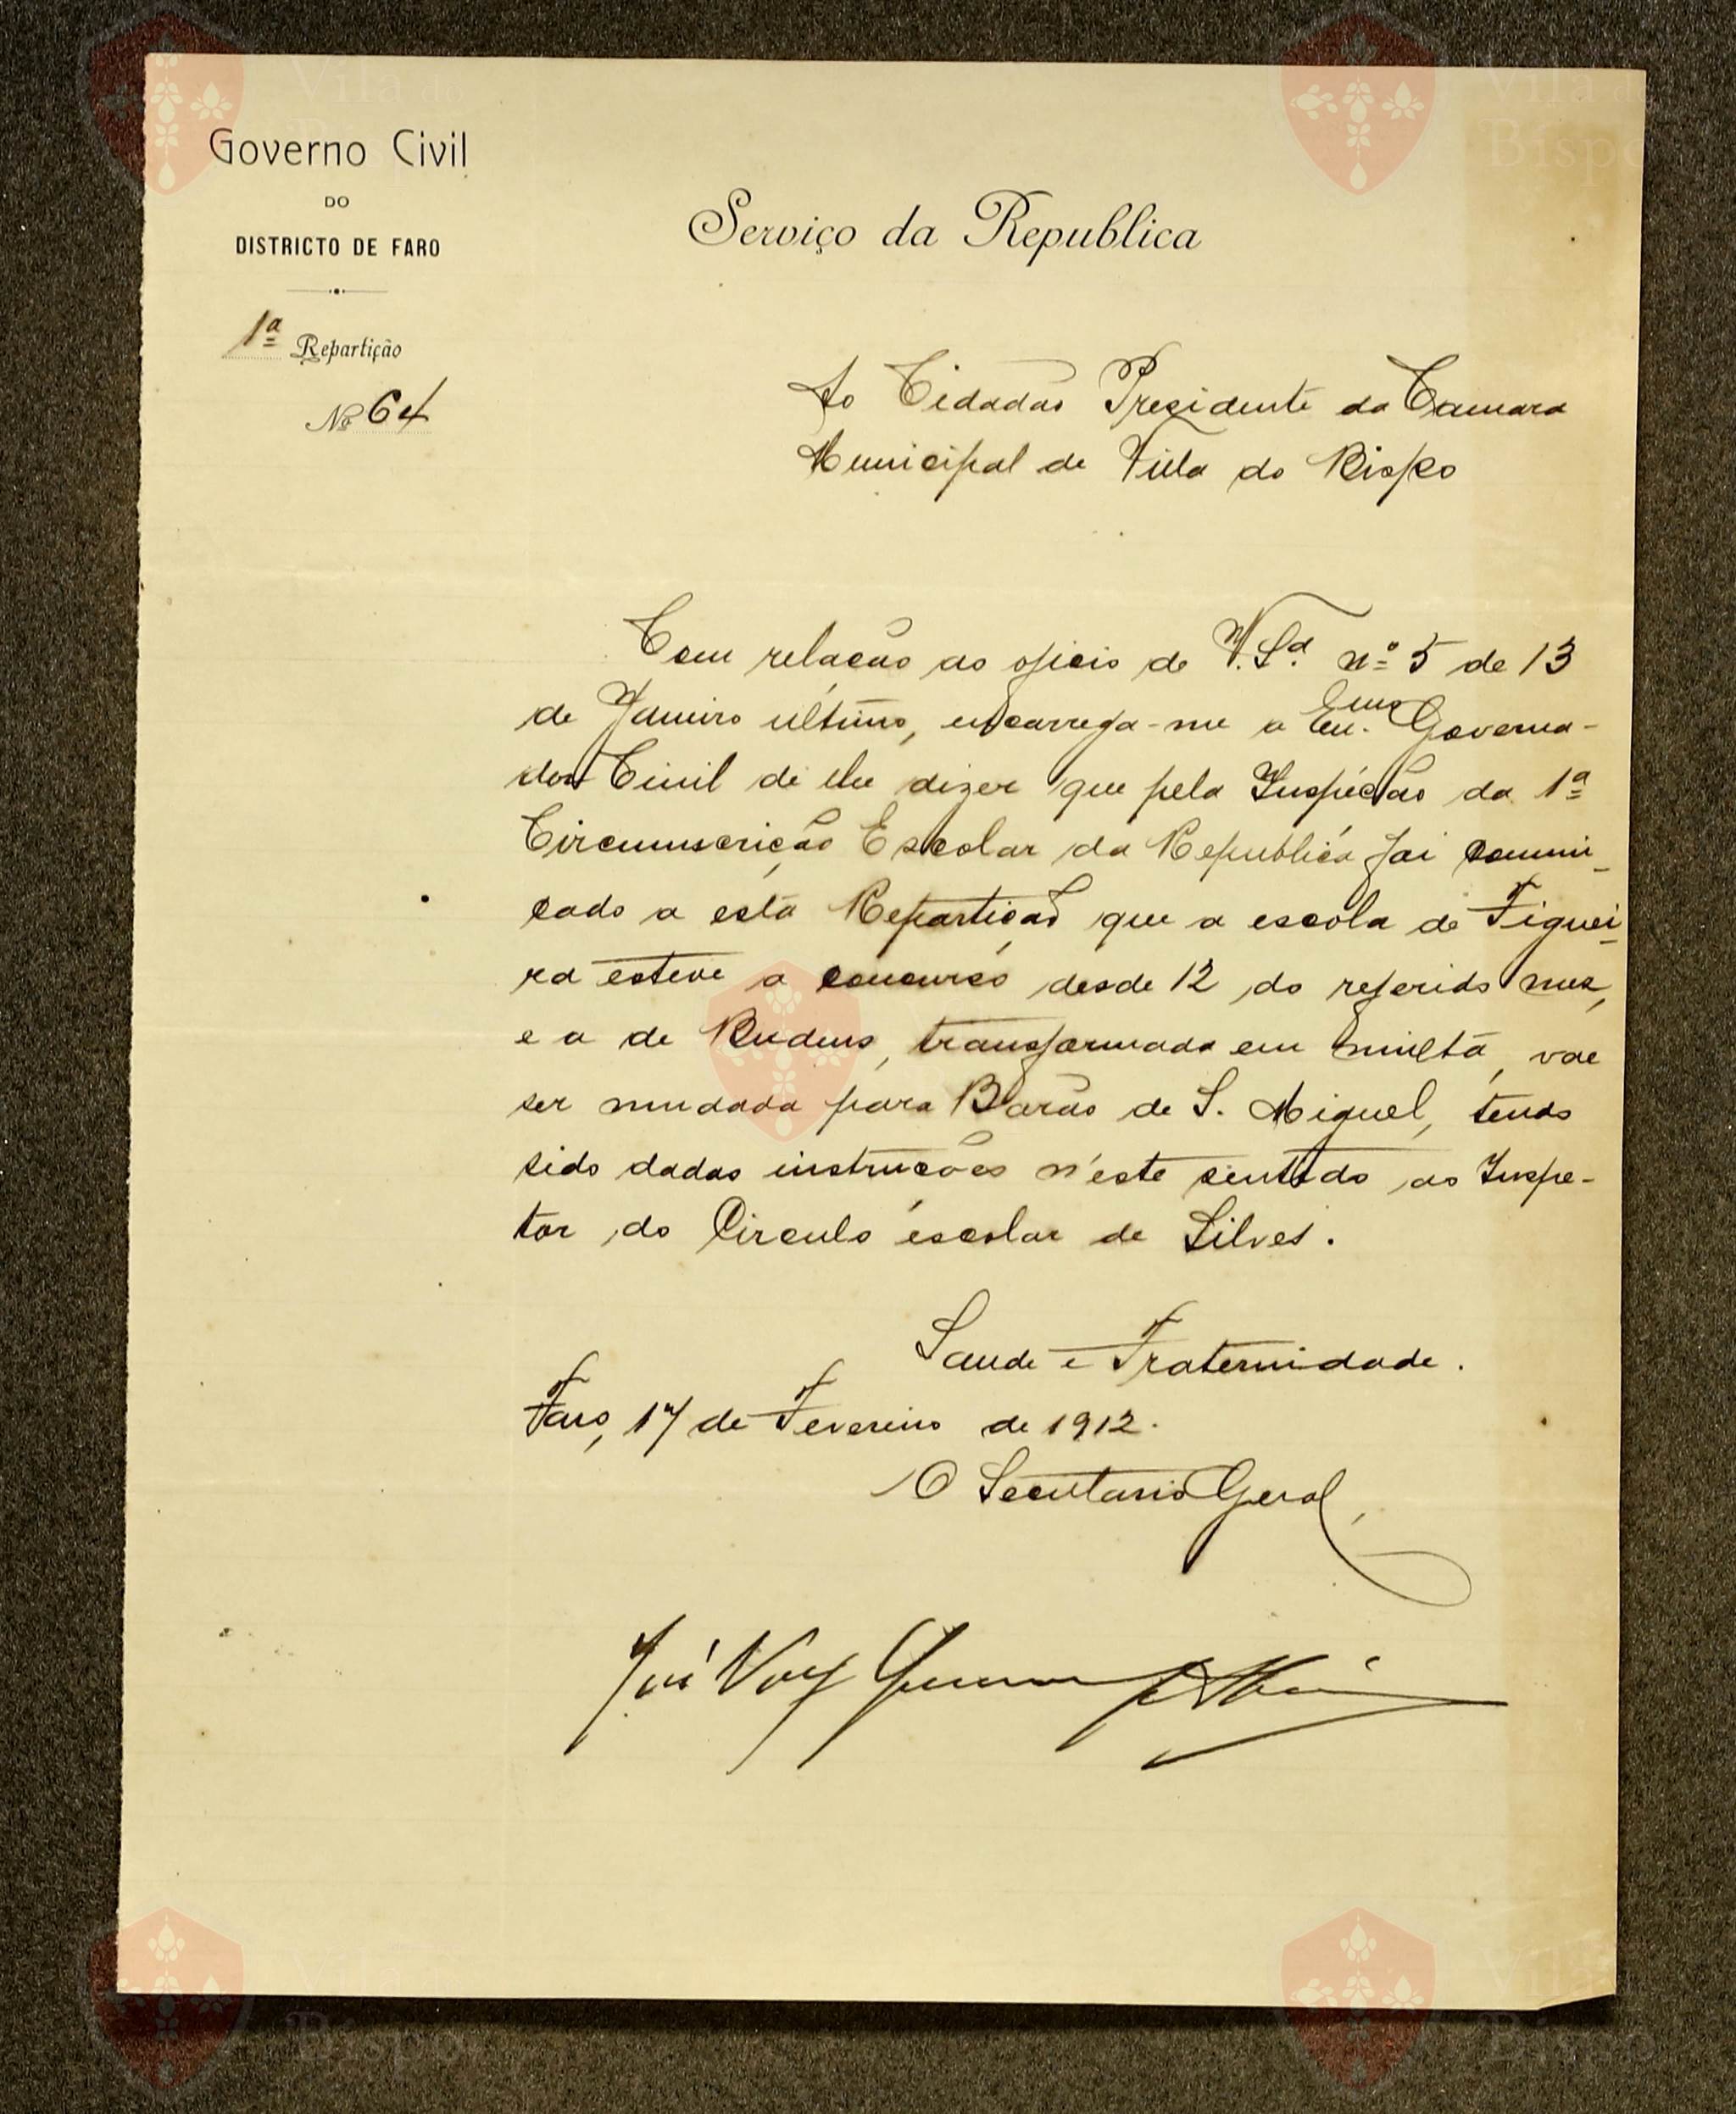 Governo Civil
DO
DISTRICTO DE FARO
1ª Repartição
Nº 64
Serviço da Republica
Ao Cidadão Presidente da Camara
Municipal de Villa do Bispo
Com relação ao oficio de V. Sª. nº 5 de 13
de Janeiro ultimo, encarrega-me o Exmo. Governa-
dor Civil de lhe dizer que pela Inspéção da 1ª
Circumscrição Escolar da Republica foi commu-
cado a esta Repartição que a escola de Figuei-
ra esteve a concurso desde 12 do referido mez,
e a de Budens, transformada em mixta, vae
ser mudada para Barão de S. Miguel, tendo
sido dadas instruções n'este sentido ao Inspe-
tor do Circulo escolar de Silves.
Saude e Fraternidade.
Faro, 17 de Fevereiro de 1912.
O Secretario Geral,
José Vaz
Vila do
Bispo
Vila do
Bispo
Vila do
Bispo
Vila do
Bispo